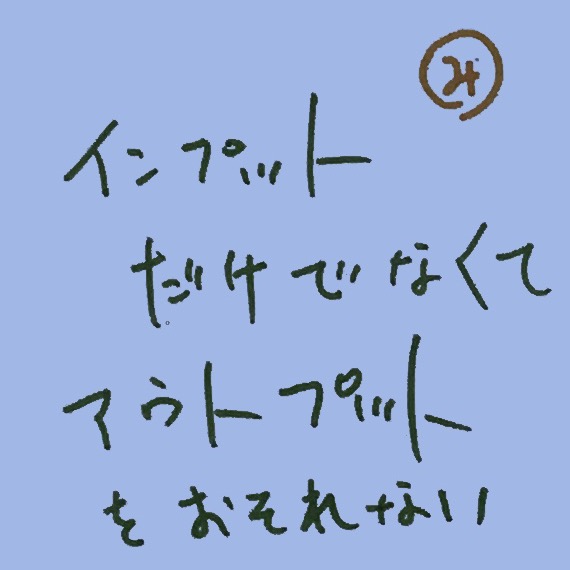 インプット
だけでなくて
アウトプット
をおそれない